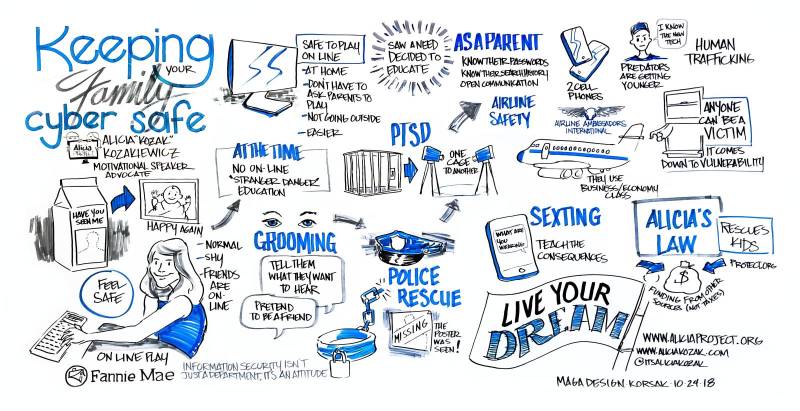 Keeping
YOUR
Family
cyber safe
ALICIA
ALICIA "KOZAK"
KOZAKIEWICZ
MOTIVATIONAL SPEAKER
ADVOCATE
HAVE YOU
SEEN ME
HAPPY AGAIN
FEEL
SAFE
ON LINE PLAY
NORMAL
SHY
FRIENDS
ARE
ON-
LINE
SAFE TO PLAY
ON LINE
- AT HOME
- DON'T HAVE TO
ASK PARENTS TO
PLAY
- NOT GOING OUTSIDE
- EASIER
AT THE TIME
NO ON-LINE
"STRANGER DANGER"
EDUCATION
GROOMING
TELL THEM
WHAT THEY WANT
TO HEAR
PRETEND
TO BE A FRIEND
SAW A NEED
DECIDED TO
EDUCATE
AS A PARENT
KNOW THEIR PASSWORDS
KNOW THEIR SEARCH HISTORY
OPEN COMMUNICATION
PTSD
ONE
CAGE
TO ANOTHER
POLICE
RESCUE
MISSING
THE
POSTER
WAS
SEEN!
2 CELL
PHONES
I KNOW
THE NEW
TECH
PREDATORS
ARE GETTING
YOUNGER
HUMAN
TRAFFICKING
AIRLINE
SAFETY
AIRLINE AMBASSADORS
INTERNATIONAL
THEY USE
BUSINESS/ECONOMY
CLASS
ANYONE
CAN BE A
VICTIM
IT COMES
DOWN TO VULNERABILITY
SEXTING
WHAT ARE
YOU
WEARING?
TEACH THE
CONSEQUENCES
ALICIA'S
LAW
RESCUES
KIDS
PROTECT.ORG
$
FUNDING FROM OTHER
SOURCES (NOT TAXES)
LIVE YOUR
DREAM
WWW.ALICIAPROJECT.ORG
WWW.ALICIAKOZAK.COM
@ITSALICIAKOZAK
Fannie Mae
INFORMATION SECURITY ISN'T
JUST A DEPARTMENT, IT'S AN ATTITUDE
MAGA DESIGN KORSAK 10·24·18